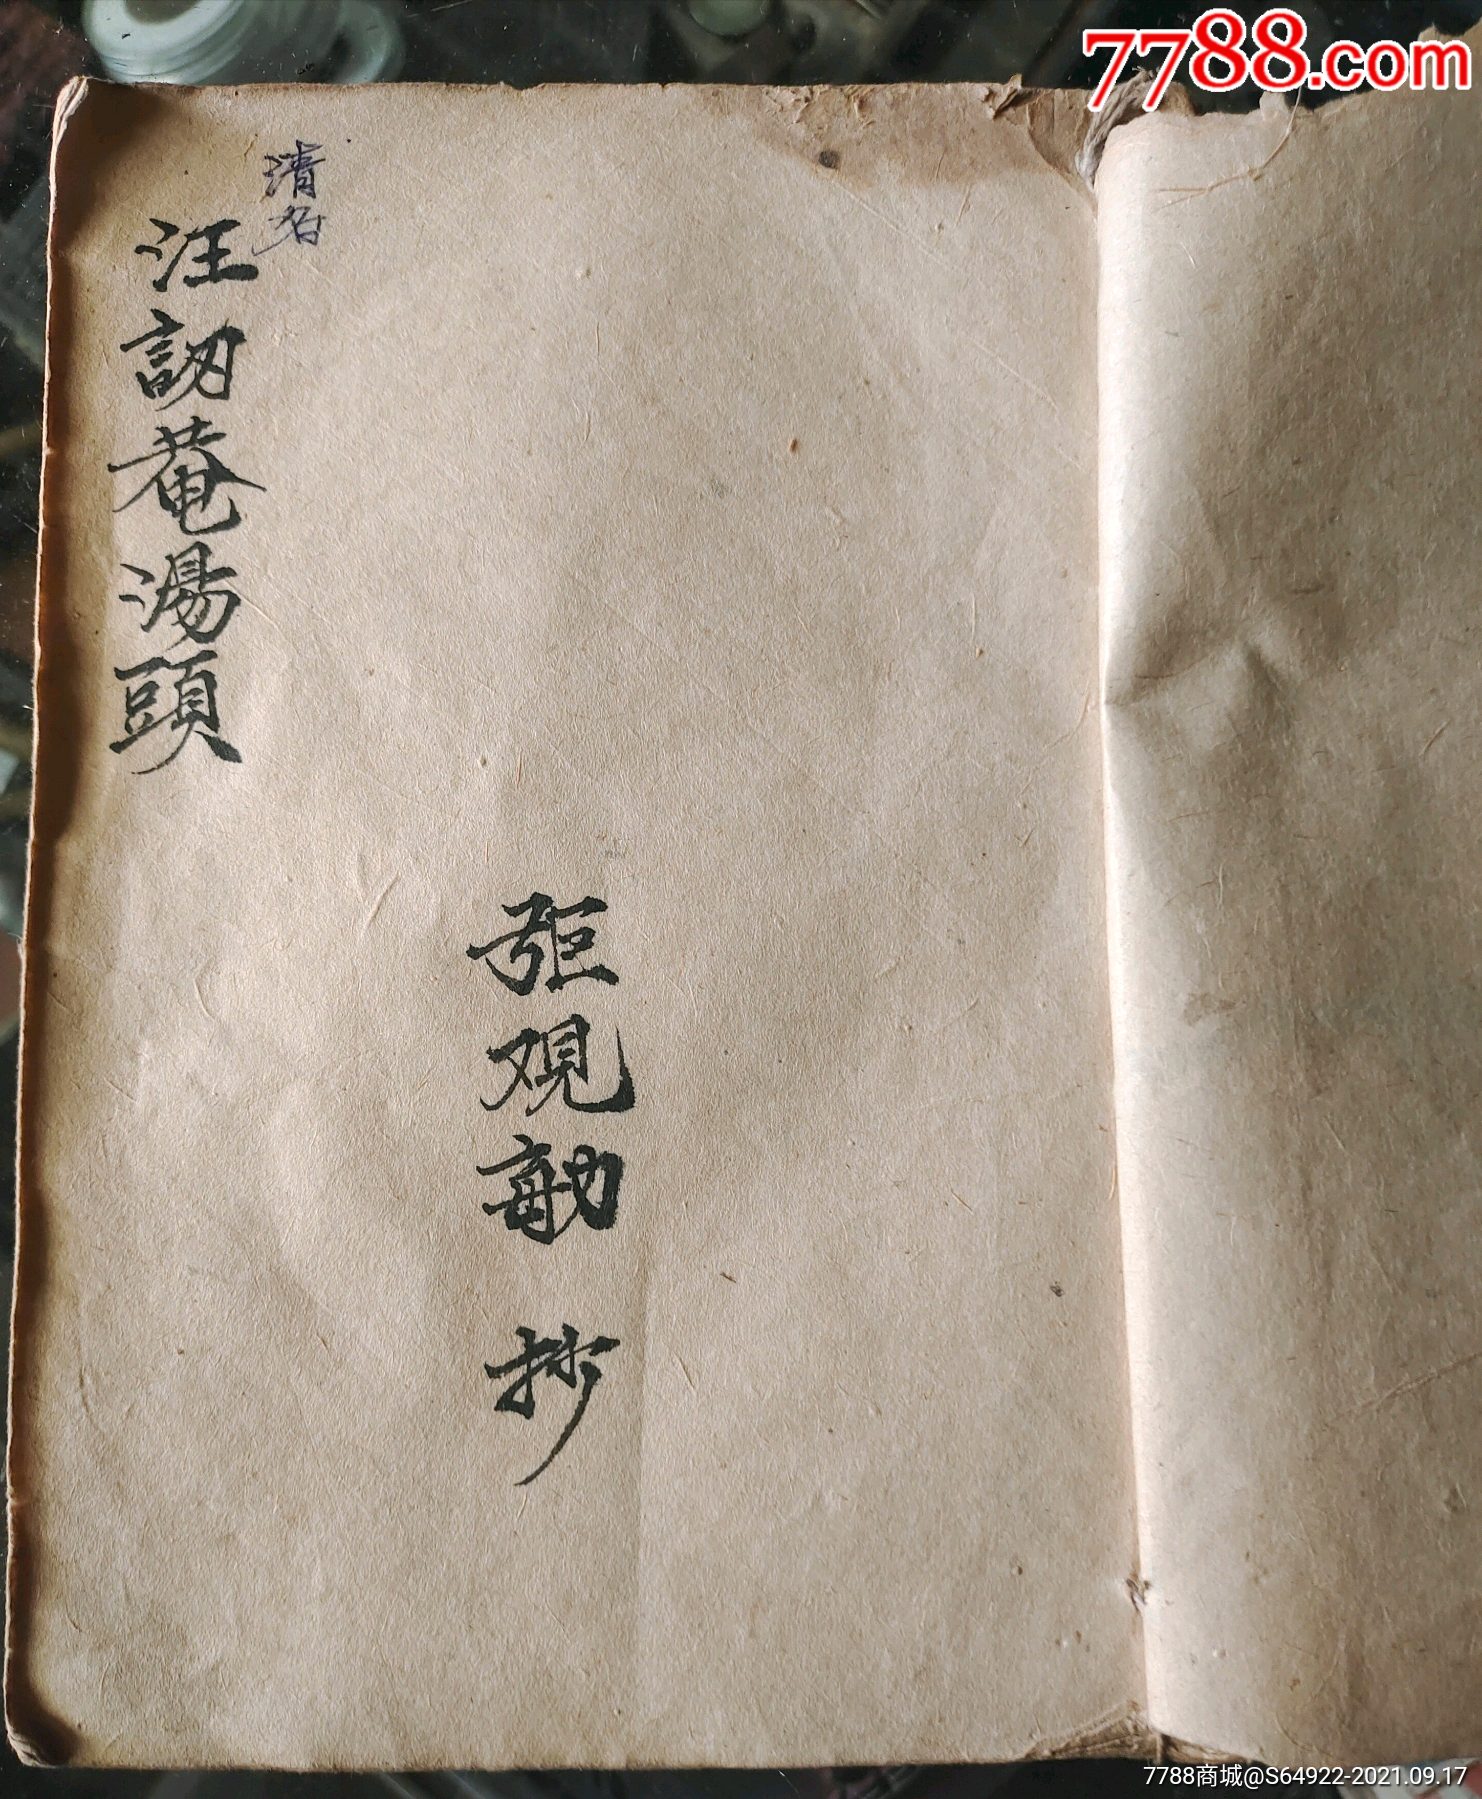 7788.com
清名
汪訒菴湯頭
覌 抄
7788商城@S64922-2021.09.17